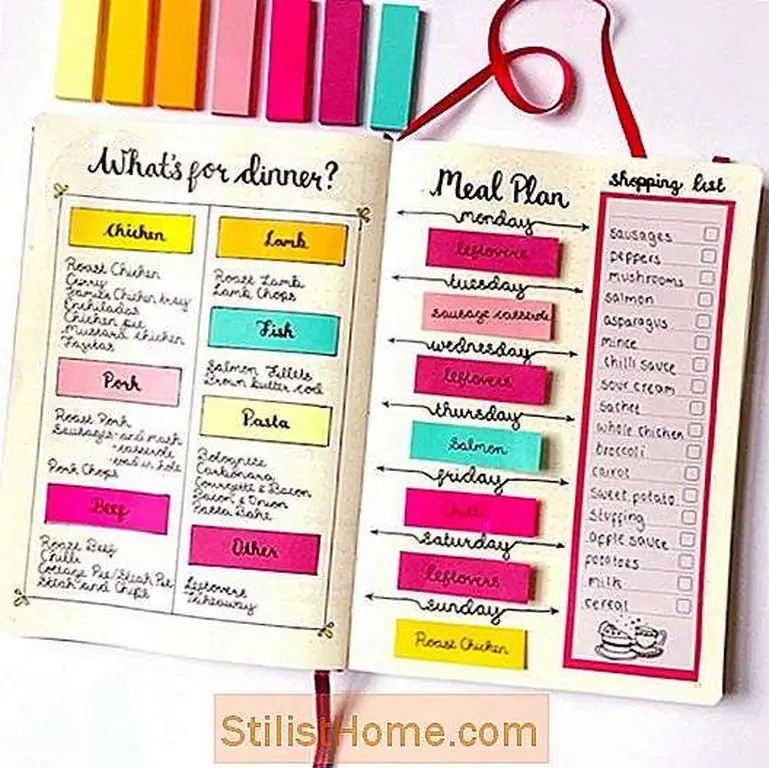 What's for dinner?
Chicken
Roast Chicken
Curry
James Chicken tray
Enchiladas
Chicken pie
Mustard chicken
Fajitas
Pork
Roast Pork
Sausages-and mash
-casserole
-toad in hole
Pork Chops
Beef
Roast Beef
Chilli
Cottage Pie/Steak Pie
Steak and Chips
Lamb
Roast Lamb
Lamb Chops
Fish
Salmon Fillets
Brown butter cod
Pasta
Bolognese
Carbonara
Courgette & Bacon
Bacon & Onion
Pasta Bake
Other
Leftovers
Takeaway
Meal Plan
monday
Leftovers
tuesday
Sausage casserole
wednesday
Leftovers
thursday
Salmon
friday
Chilli
saturday
Leftovers
sunday
Roast Chicken
shopping list
sausages
peppers
mushrooms
salmon
asparagus
mince
chilli sauce
sour cream
sachet
whole chicken
broccoli
carrot
sweet potato
stuffing
apple sauce
potatoes
milk
cereal
StilistHome.com